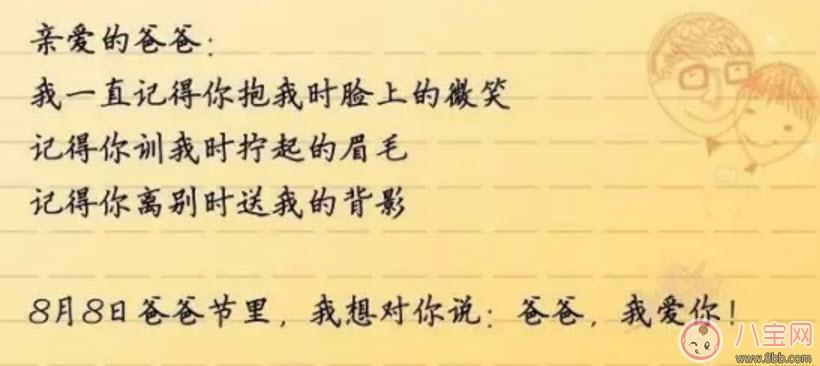 亲爱的爸爸：
我一直记得你抱我时脸上的微笑
记得你训我时拧起的眉毛
记得你离别时送我的背影
8月8日爸爸节里，我想对你说：爸爸，我爱你！
八宝网
www.8bb.com